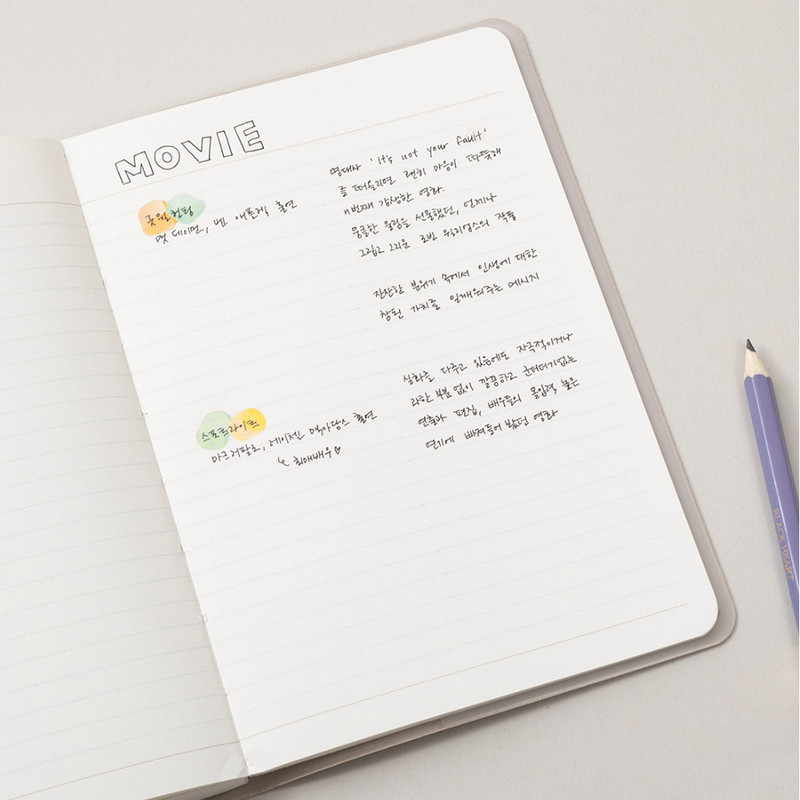 MOVIE
굿윌헌팅
맷 데이먼, 벤 애플렉 출연
명대사 'it's not your fault'
를 떠올리면 괜히 마음이 따뜻해
n번째 감상한 영화.
뭉클한 울림을 선물했던, 언제나
그립고 그리운 로빈 윌리엄스의 작품
잔잔한 분위기 속에서 인생에 대한
참된 가치를 일깨워주는 메시지
스포트라이트
마크러팔로, 레이첼 맥아담스 출연
최애배우♡
실화를 다루고 있음에도 자극적이거나
과한 부분 없이 깔끔하고 군더더기없는
연출과 편집, 배우들의 몰입력 높은
연기에 빠져들어 봤던 영화
BLACK HEART